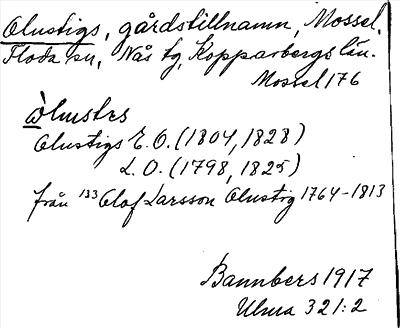 Olustigs, gårdstillnamn, Mossel,
Floda sn, Nås tg, Kopparbergs län.
Mossel 176
òlustes
Olustigs E. O. (1804, 1828)
L. O. (1798, 1825)
från 133 Olof Larsson Olustig 1764-1813
Bannbers 1917
Ulma 321:2